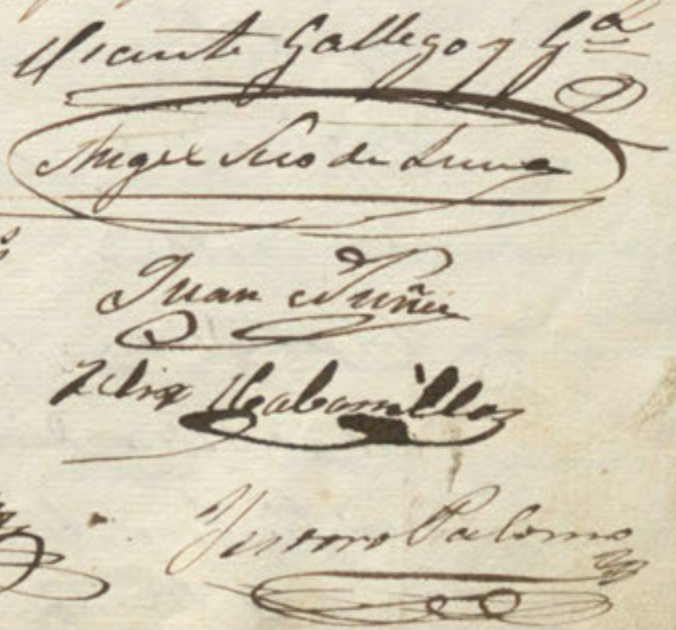 Vicente Gallego y G.ª
Angel Rico de Luna
Juan Nuñez
Felix Cabanillas
Palomo